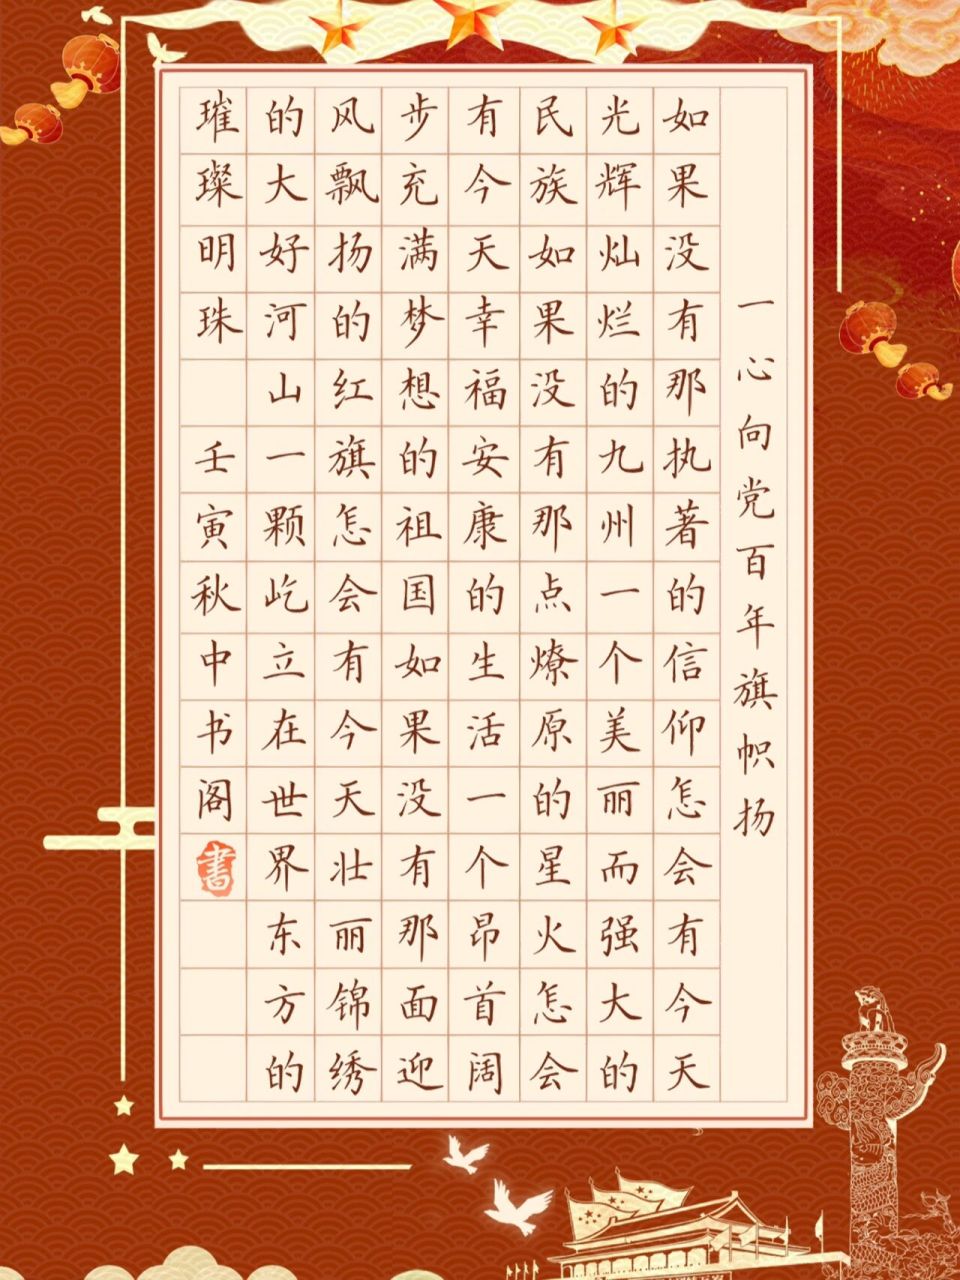 一心向党百年旗帜扬
如果没有那执著的信仰怎会有今天
光辉灿烂的九州一个美丽而强大的
民族如果没有那点燎原的星火怎会
有今天幸福安康的生活一个昂首阔
步充满梦想的祖国如果没有那面迎
风飘扬的红旗怎会有今天壮丽锦绣
的大好河山一颗屹立在世界东方的
璀璨明珠 壬寅秋中书阁
書